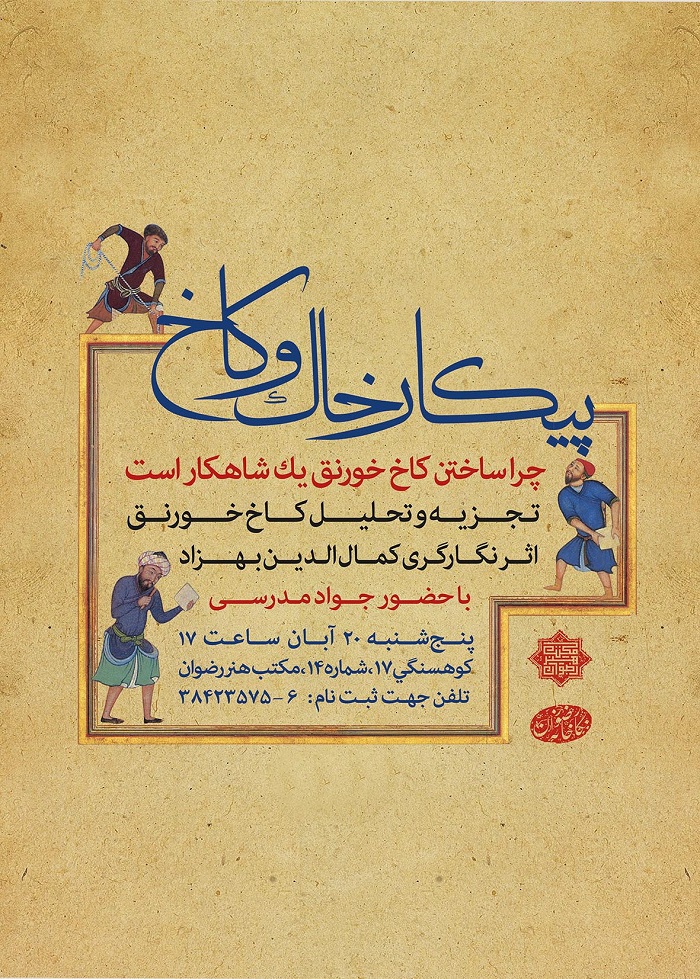 پیکار خاك و کاخ
چرا ساختن کاخ خورنق یك شاهکار است
تجزیه و تحلیل کاخ خورنق
اثر نگارگری کمال الدین بهزاد
با حضور جواد مدرسی
پنج‌شنبه ۲۰ آبان ساعت ۱۷
کوهسنگي ۱۷، شماره ۱۴، مکتب هنر رضوان
تلفن جهت ثبت نام: ۶-۳۸۴۲۳۵۷۵
مکتب هنر رضوان
نگارخانه رضوان